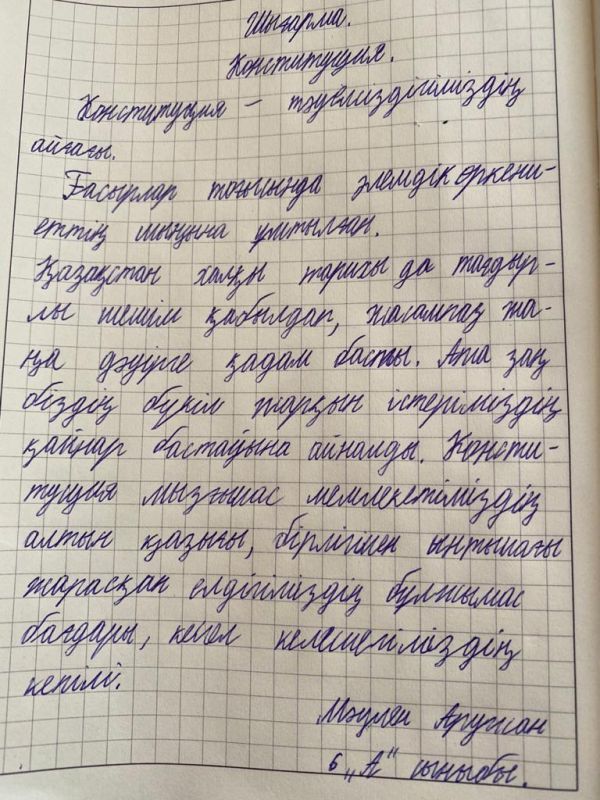 Шығарма.
Конституция.
Конституция – тәуелсіздігіміздің
айғағы.
Ғасырлар тоғысында әлемдік өркени-
еттің шыңына ұмтылған.
Қазақстан халқы тарихы да тағдыр-
лы шешім қабылдап, жасампаз жа-
ңа дәуірге қадам басты. Ата заң
біздің бүкіл жарқын істеріміздің
қайнар бастауына айналды. Консти-
туция мызғымас мемлекетіміздің
алтын қазығы, бірлігімен ынтымағы
жарасқан елдігіміздің бұлжымас
бағдары, кемел келешегіміздің
кепілі.
Мәулен Аружан
6 „А" сыныбы.